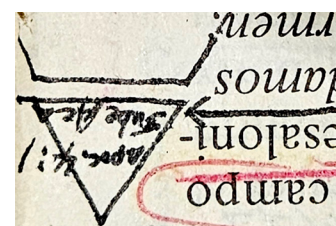 campo
esaloni-
damos
rmen
apoc. 4:1
Sube Aca